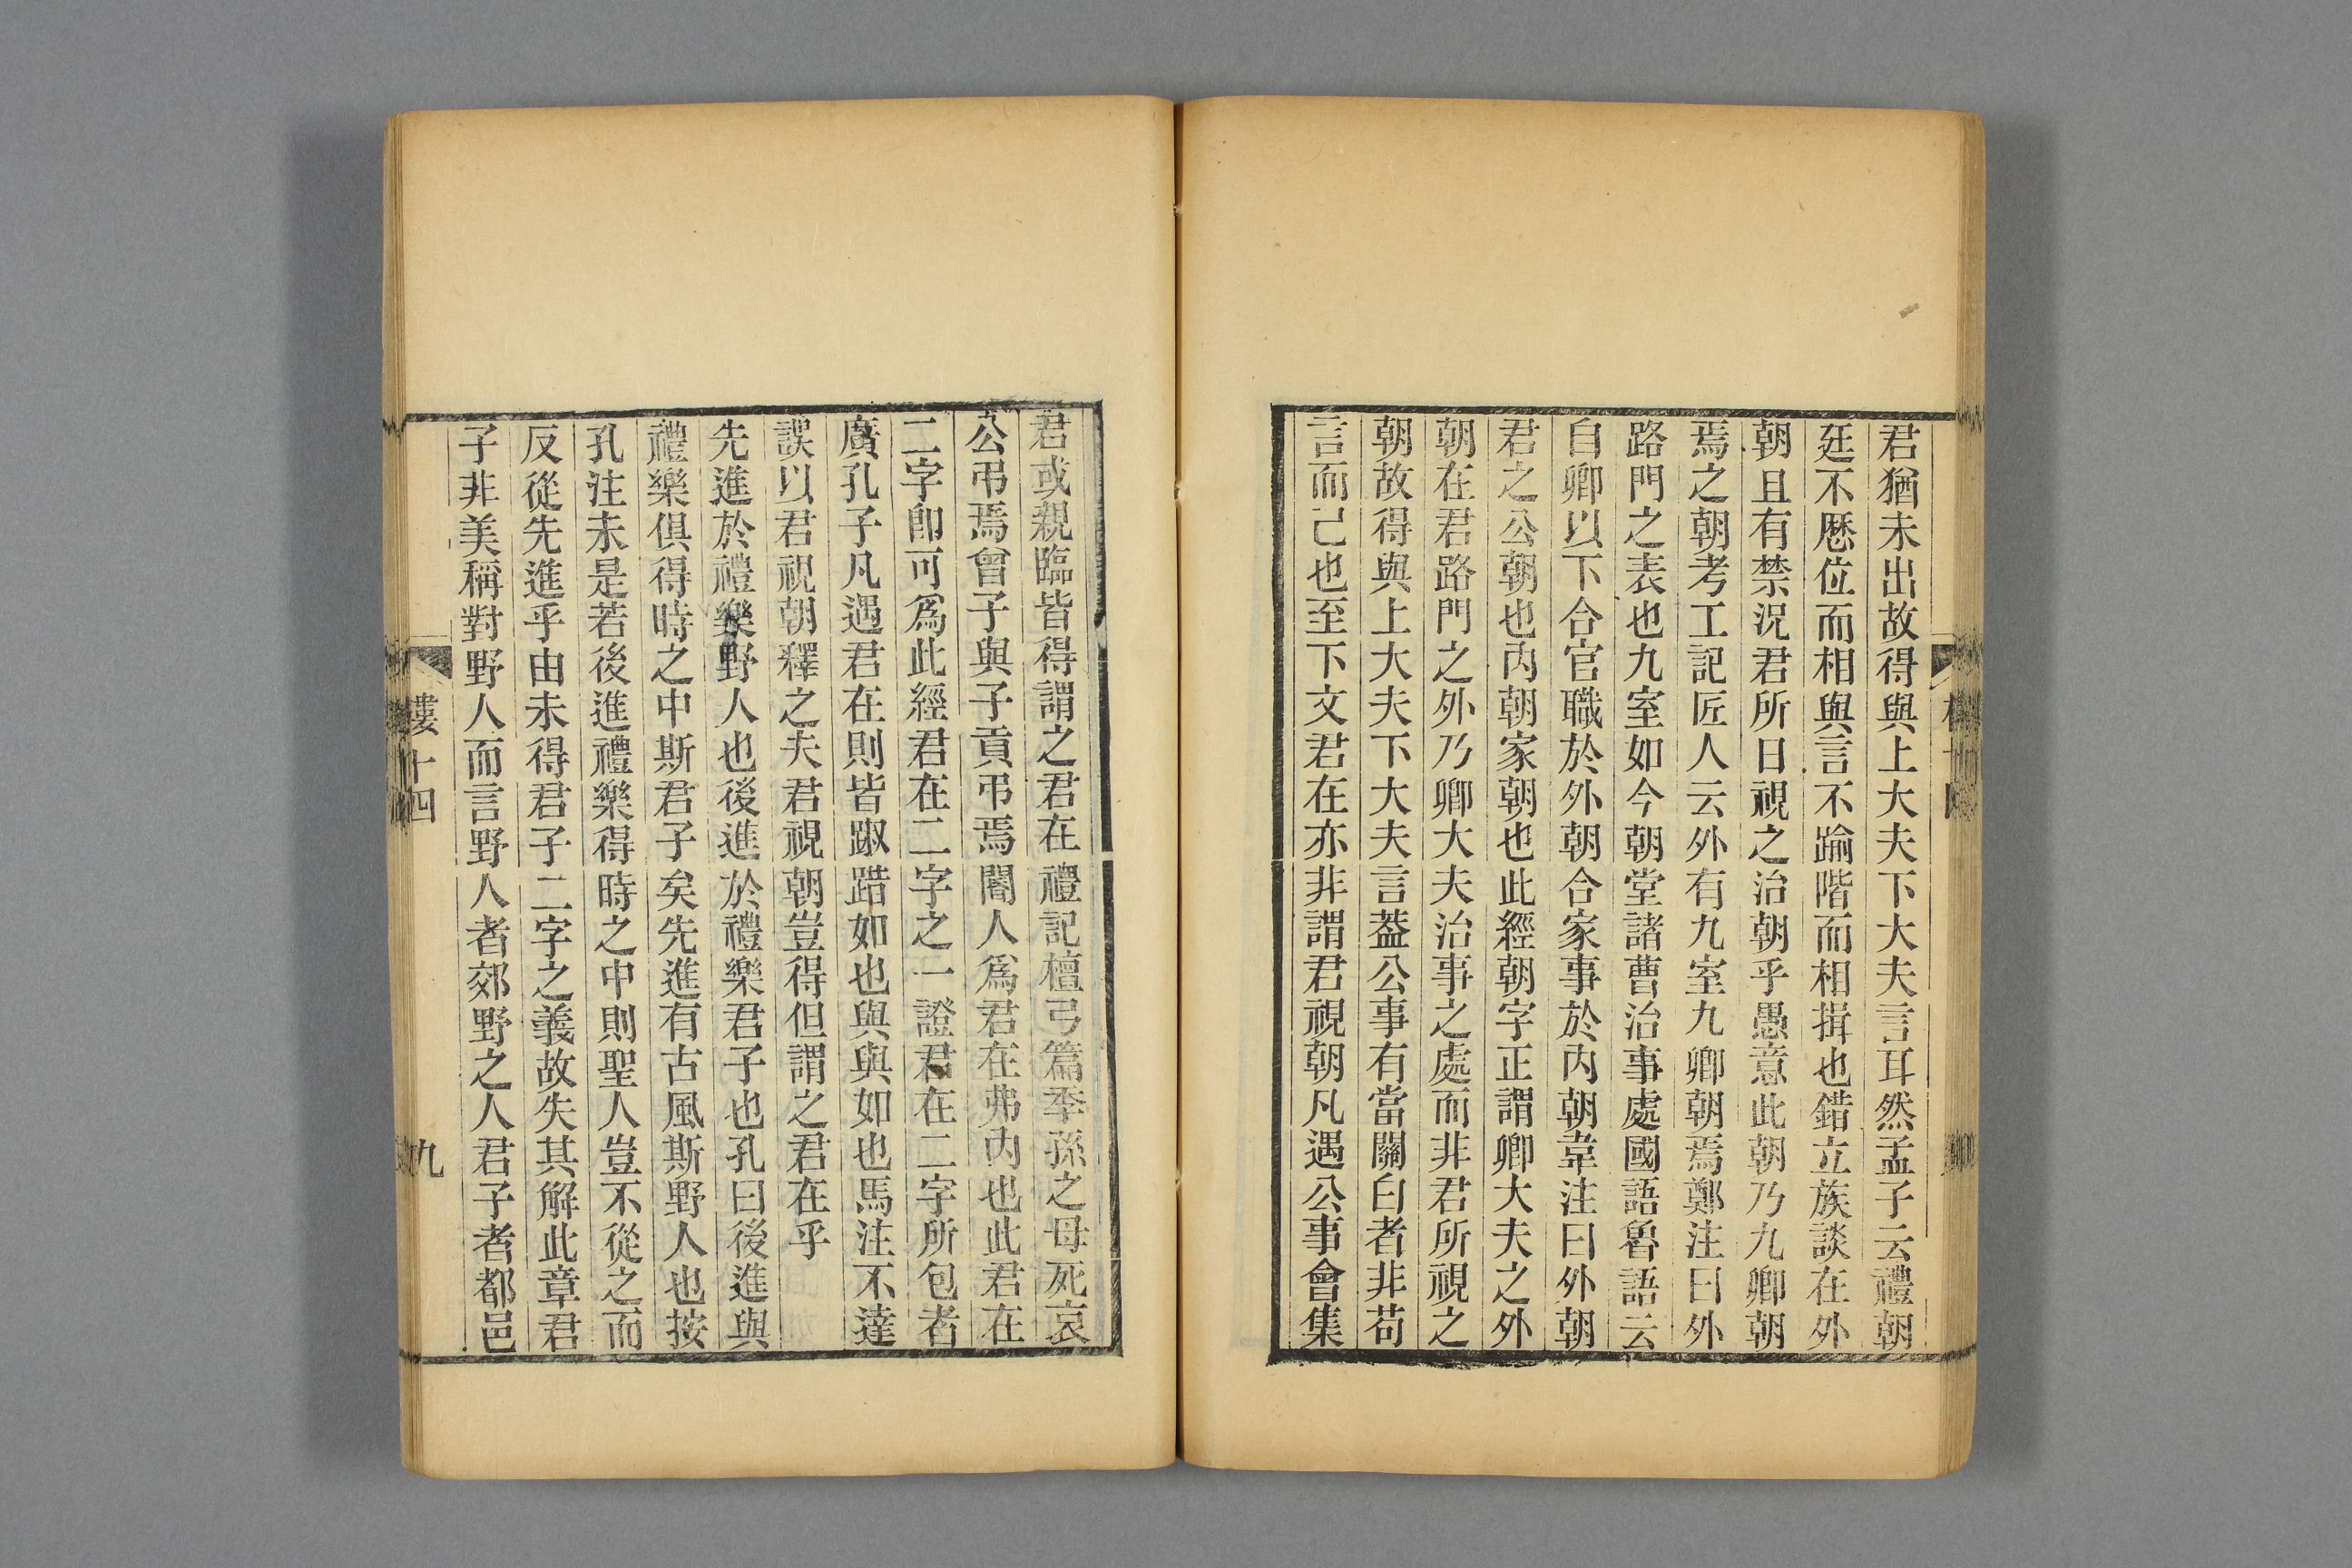 君猶未出故得與上大夫下大夫言耳然孟子云禮朝
廷不歷位而相與言不踰階而相揖也錯立族談在外
朝且有禁況君所日視之治朝乎愚意此朝乃九卿朝
焉之朝考工記匠人云外有九室九卿朝焉鄭注曰外
路門之表也九室如今朝堂諸曹治事處國語魯語云
自卿以下合官職於外朝合家事於內朝韋注曰外朝
君之公朝也內朝家朝也此經朝字正謂卿大夫之外
朝在君路門之外乃卿大夫治事之處而非君所視之
朝故得與上大夫下大夫言葢公事有當關白者非苟
言而已也至下文君在亦非謂君視朝凡遇公事會集
君或親臨皆得謂之君在禮記檀弓篇季孫之母死哀
公弔焉曾子與子貢弔焉閽人爲君在弗內也此君在
二字卽可爲此經君在二字之一證君在二字所包者
廣孔子凡遇君在則皆踧踖如也與與如也馬注不達
誤以君視朝釋之夫君視朝豈得但謂之君在乎
先進於禮樂野人也後進於禮樂君子也孔曰後進與
禮樂俱得時之中斯君子矣先進有古風斯野人也按
孔注未是若後進禮樂得時之中則聖人豈不從之而
反從先進乎由未得君子二字之義故失其解此章君
子非美稱對野人而言野人者郊野之人君子者都邑
樓十四
九